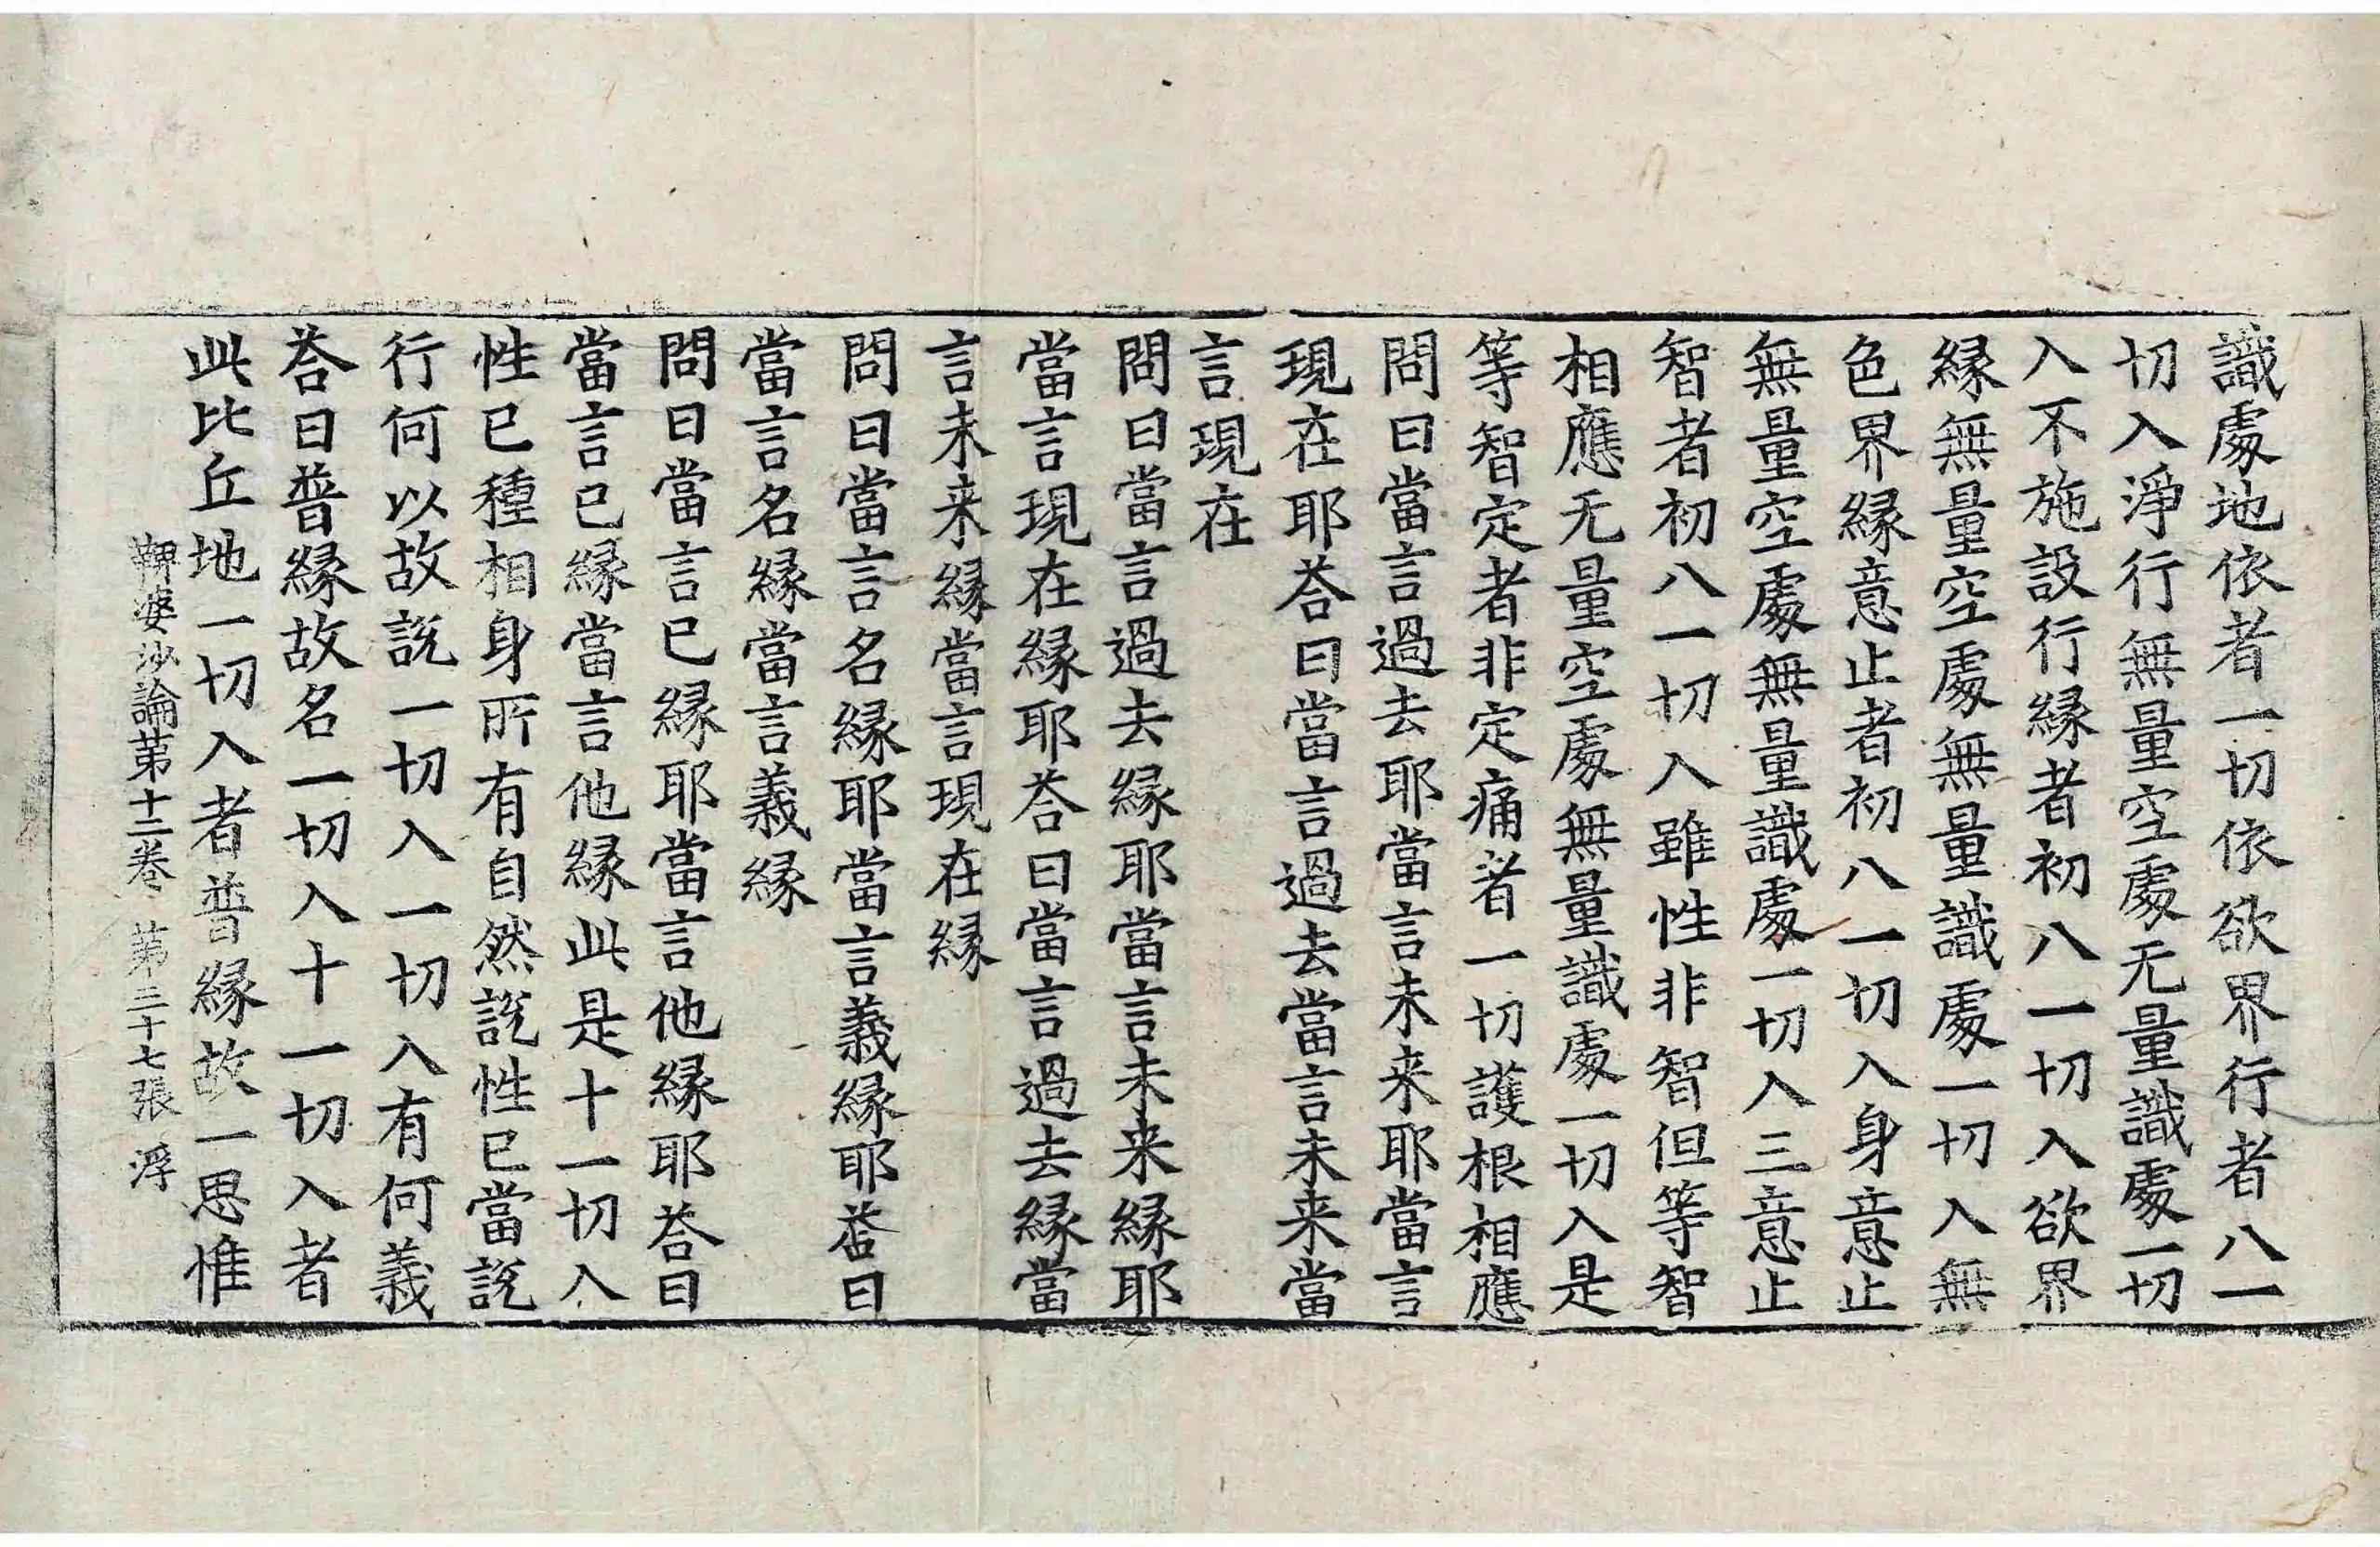 識處地依者一切依欲界行者八一
切入淨行無量空處无量識處一切
入不施設行縁者初八一切入欲界
縁無量空處無量識處一切入無
色界縁意止者初八一切入身意止
無量空處無量識處一切入三意止
智者初八一切入雖性非智但等智
相應无量空處無量識處一切入是
等智定者非定痛者一切護根相應
問曰當言過去耶當言未来耶當言
現在耶荅曰當言過去當言未来當
言現在
問曰當言過去縁耶當言未来縁耶
當言現在縁耶荅曰當言過去縁當
言未来縁當言現在縁
問曰當言名縁耶當言義縁耶荅曰
當言名縁當言義縁
問曰當言已縁耶當言他縁耶荅曰
當言已縁當言他縁此是十一切入
性已種相身所有自然説性已當説
行何以故説一切入一切入有何義
荅曰普縁故名一切入十一切入者
此比丘地一切入者普縁故一思惟
鞞婆沙論苐十三卷 苐二十七張 浮